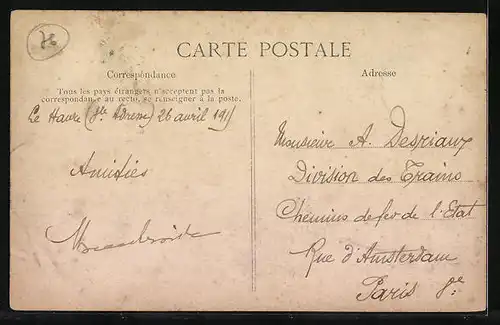 CARTE POSTALE
Correspondance
Tous les pays étrangers n'acceptent pas la
correspondance au recto, se renseigner à la poste.
Le Havre (Ste Adresse) 26 avril
Amitiés
Adresse
Monsieur A. Despiaux
Division des Trains
Chemins de fer de l'Etat
Rue d'Amsterdam
Paris 8e